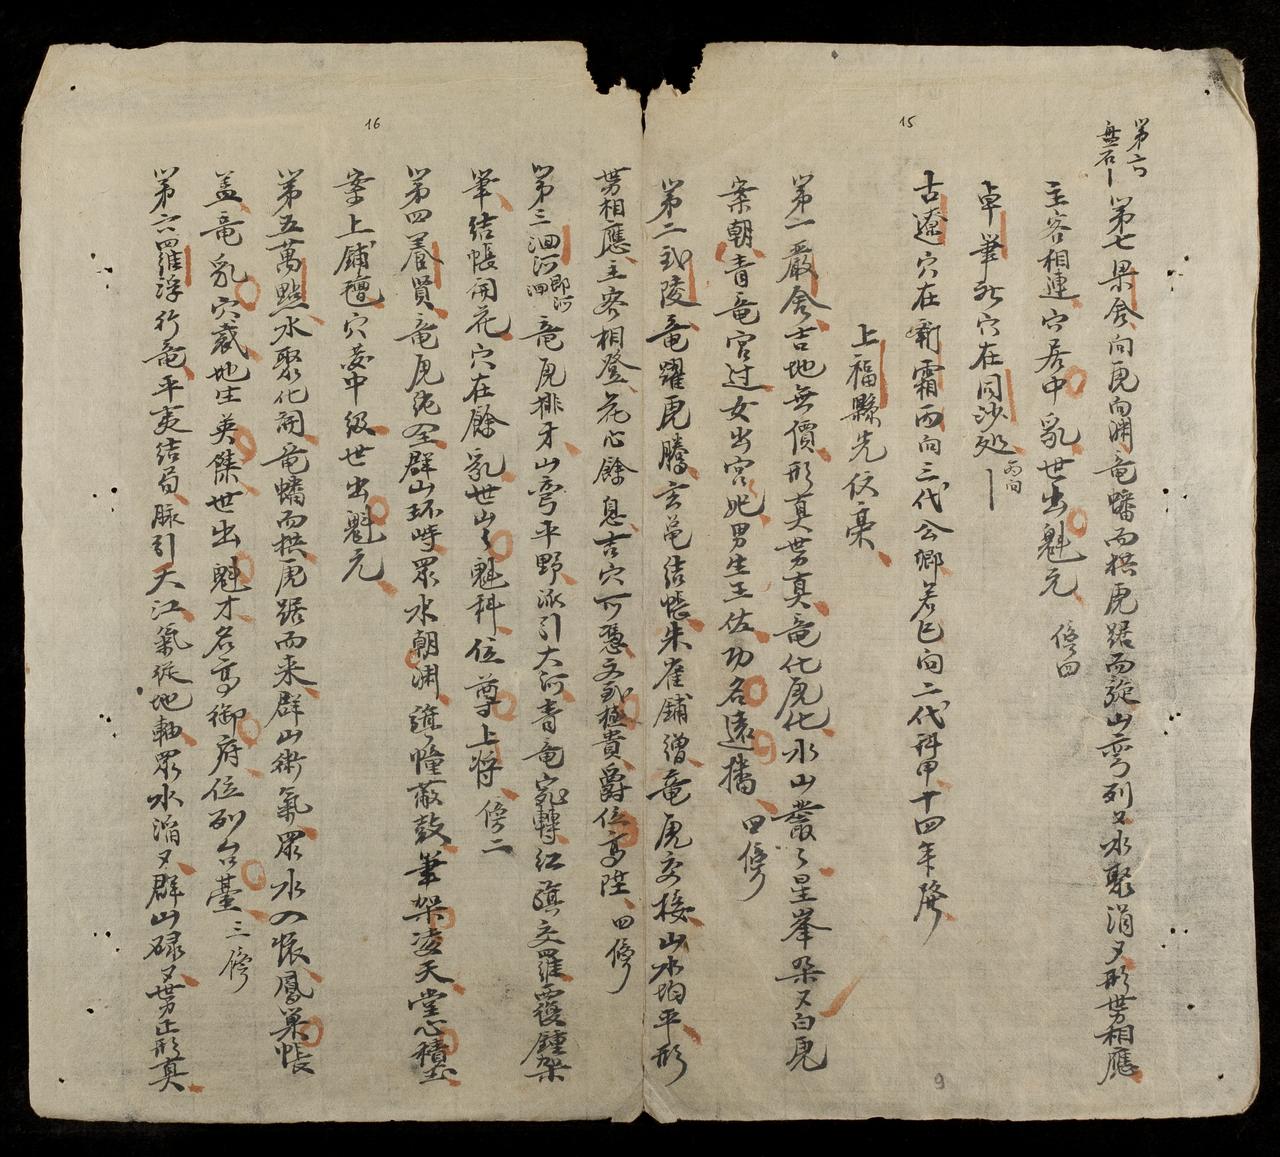 15
第六
盘石
第七果舍向虎向渊竜蟠而拱虎踞而 山弯列〻水聚涓〻形势相應
主客相連穴居中乳世出魁元 傍四
卓筆 穴在同沙処 丙向
古遼穴在斬霜丙向三代公卿若巳向二代科甲十四年發
上福縣先伩亳
第一嚴舍吉地無價形真势真竜化虎化水山叢〻星峯朶〻白虎
案朝青竜官过女出宮妃男生王佐功名遠播 四傍
第二武陵竜躍虎騰玄龟结帳朱雀鋪僧竜虎交接山水均平形
势相應主客相登花心餘息吉穴可憑文武極貴爵位高陞 四傍
16
第三洄河即河洄竜虎排牙山弯平野派引大河青竜宛轉紅旗交羅覆鍾架
筆结帳開花穴在餘乳世出魁科位尊上将 傍二
第四養賢竜虎純全群山环峙眾水朝渊旗幢蔽鼓筆架凌天堂心積玉
案上鋪氊穴葬中級世出魁元
第五萬點水聚化開竜蟠而拱虎踞而来群山衛氣眾水入懷鳳巢帳
盖竜乳穴裁地生英傑世出魁才名高御府位列台臺 三傍
第六羅浮行竜平支结局脉引天江氣從地軸眾水滔〻群山碌〻势正形真
9